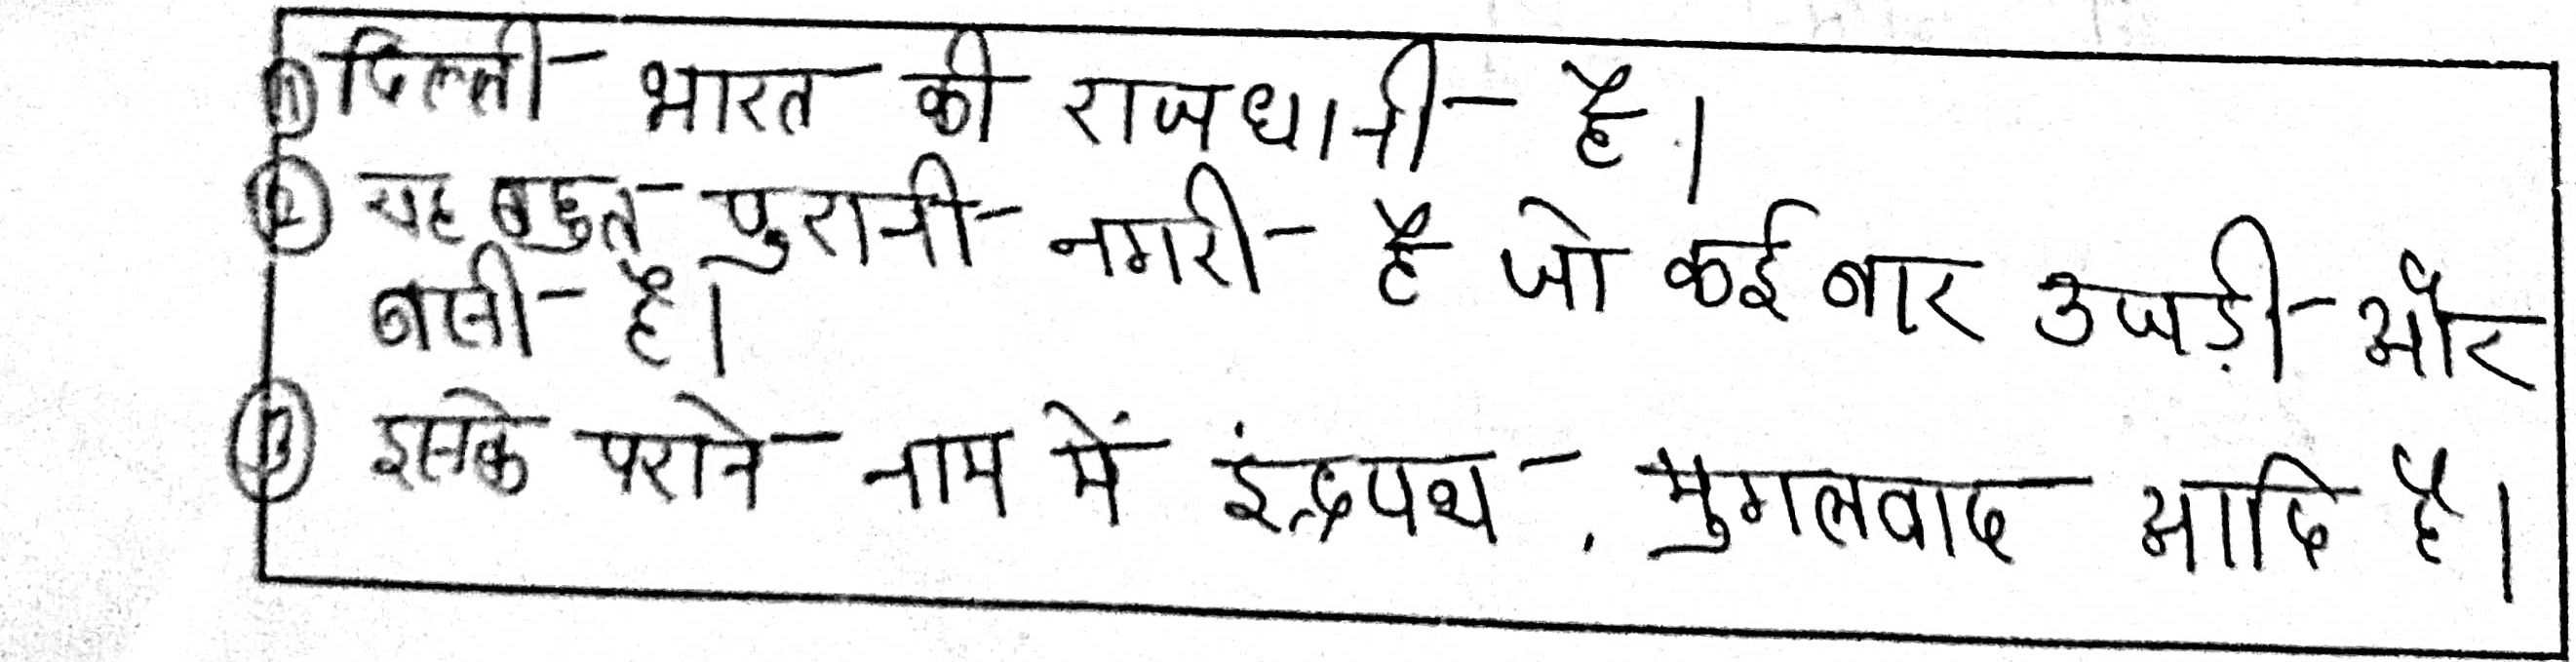 ① दिल्ली भारत की राजधानी है।
② यह बहुत पुरानी नगरी है जो कई बार उजड़ी और
बसी है।
③ इसके पराने नाम में इंद्रपथ, मुगलवाद आदि है।